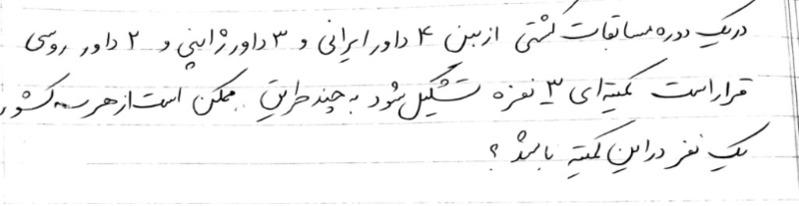 در یک دوره مسابقات کشتی از بین ۴ داور ایرانی و ۳ داور ژاپنی و ۲ داور روسی
قرار است کمیته‌ای ۳ نفره تشکیل شود به چند طریق ممکن است از هر سه کشور
یک نفر در این کمیته باشد؟